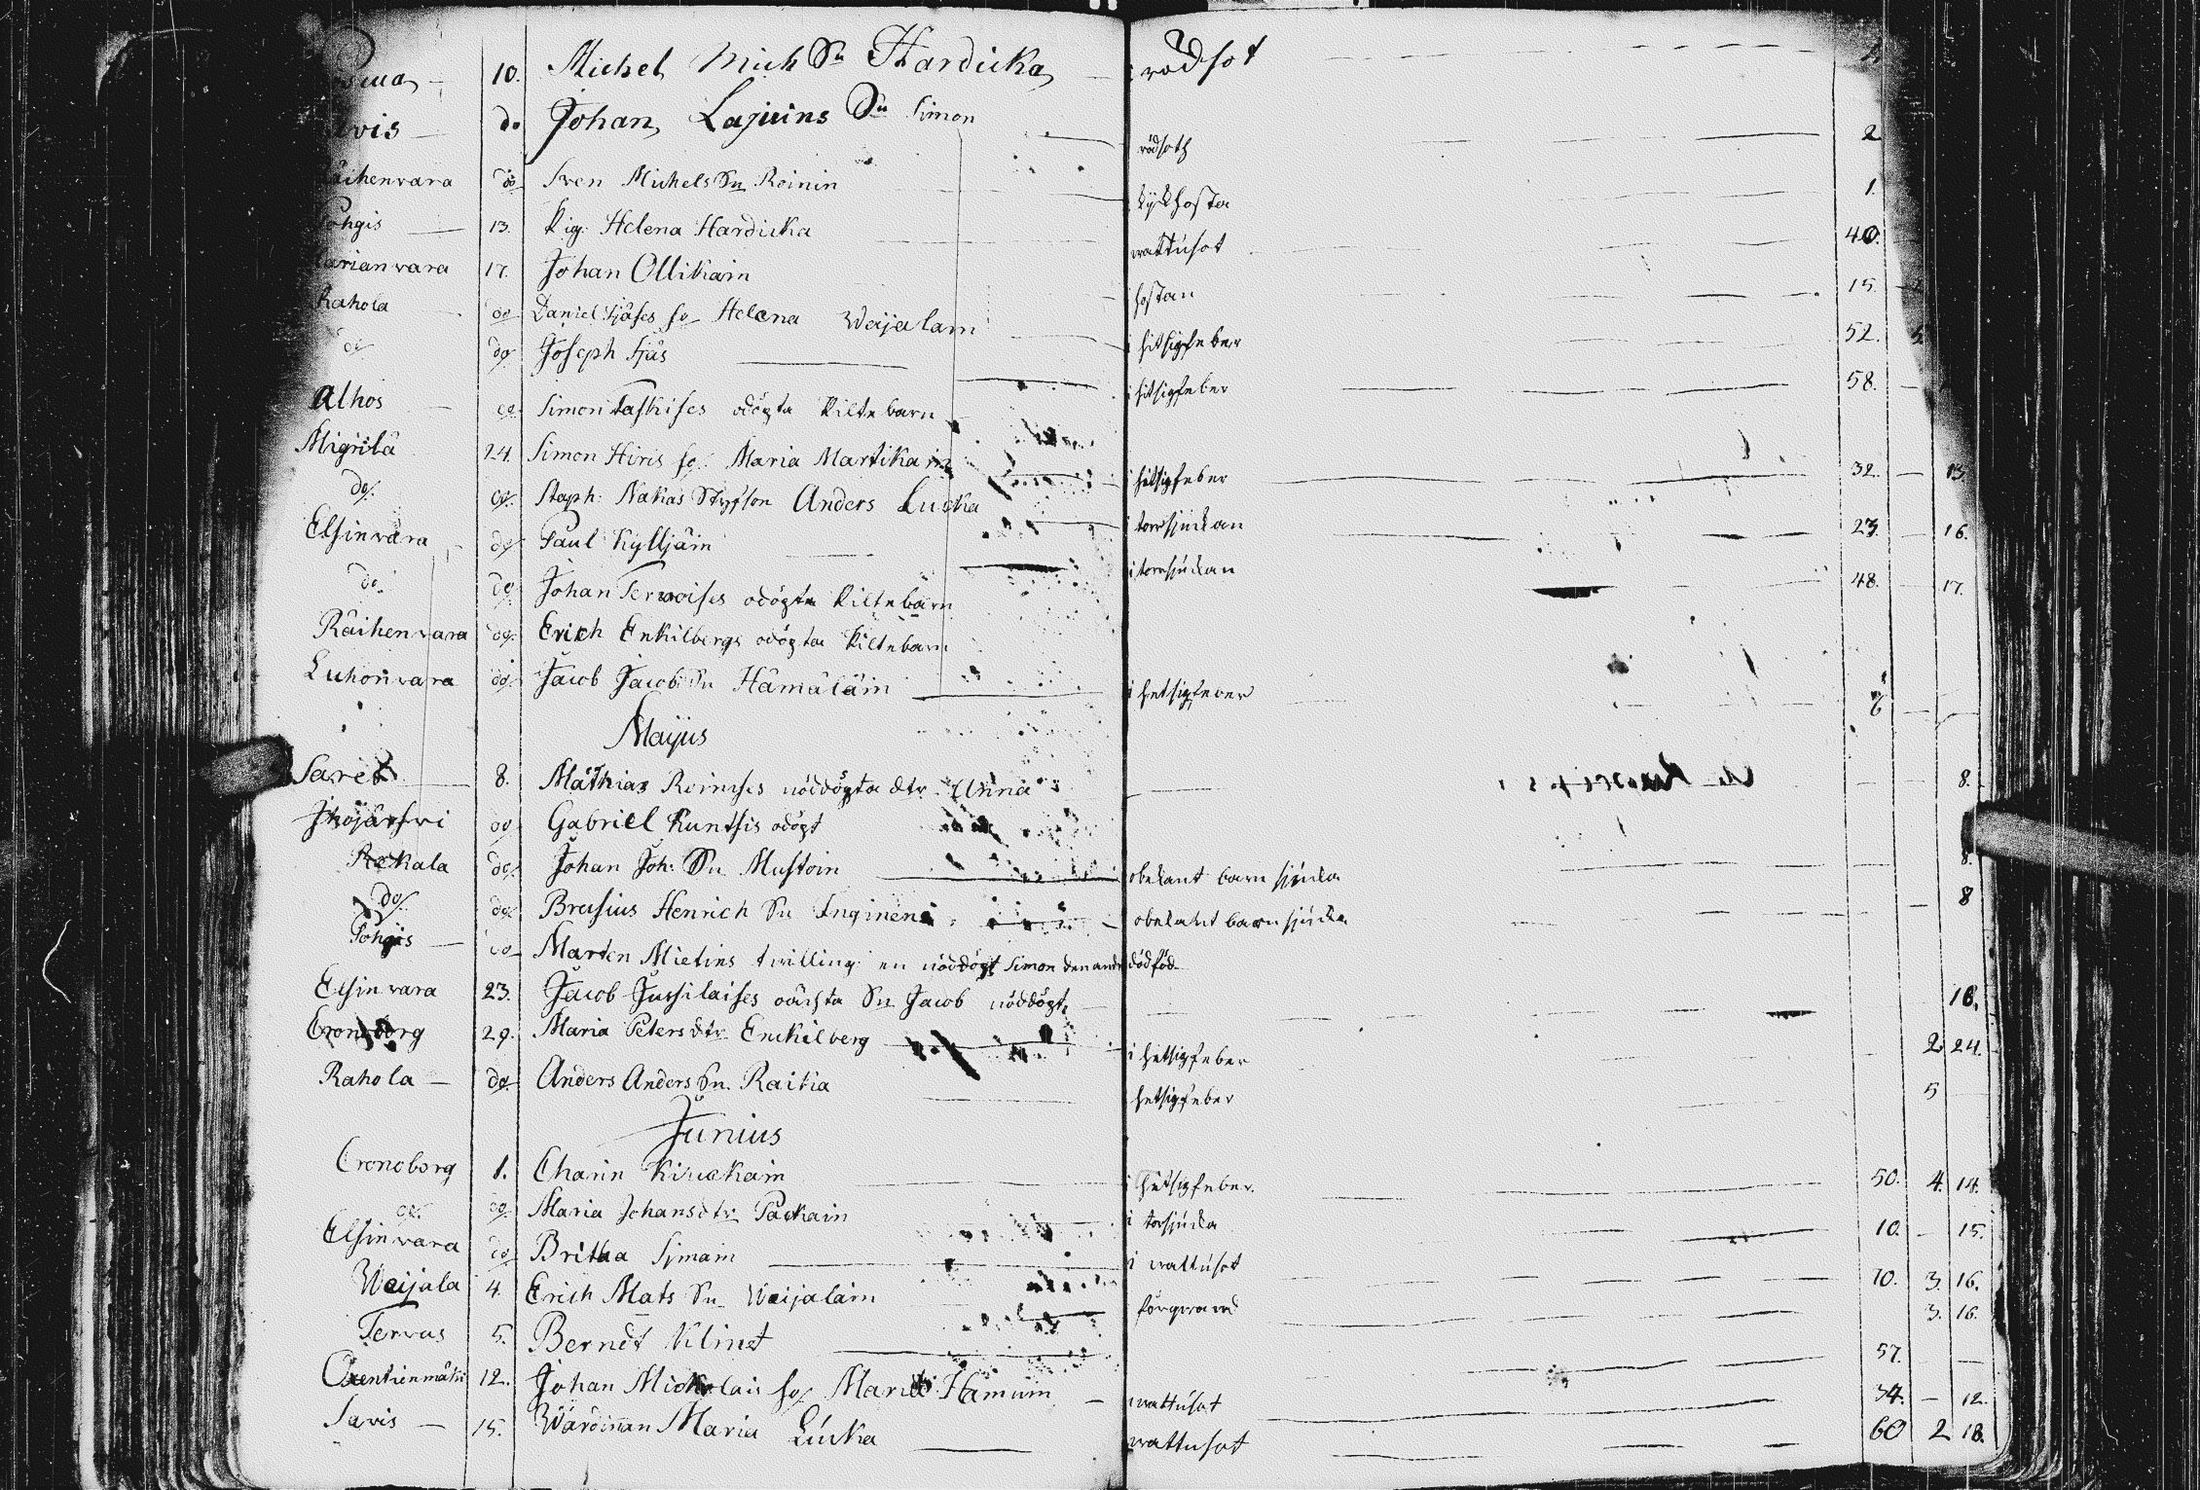 10. Michel Mich Sn Hardicka i rödsot
do Johan Lajuins Sn Simon rödsoth 2
Räihenvara do Sven Michels Sn Reinin kykhosta 1.
Pohgis 13. Pig: Helena Hardicka wattusot 40.
Marianvara 17. Johan Ollikain hostan 15
Rahola do Daniel Sjäses h/ Helena Weijalain i hitsigfeber 52.
do do Joseph Sjäs i hitsigfeber 58.
Alhos do Simon Taskises odögta Piltebarn
Migrilä 24. Simon Hiris h/ Maria Martikain i hetsigfeber 32. 13
do do Staph: Nakas Styfson Anders Lucka i torrsjukan 23. 16.
Elsinvara do Paul Kylljäin i torrsjukan 48. 17.
do do Johan Tervoises odögta Piltebarn
Räihenvara do Erich Enkilbergs odögta Piltebarn
Luhonvara do Jacob Jacob Sn Hämäläin i hetsigfeber
Majus
Saris 8. Mathias Reinises nöddögta dtr Anna 8.
Ihojärfwi do Gabriel Kuntsis odögt
Rekala do Johan Joh: Sn Mustoin obekant barn sjuka 8.
do do Brusius Henrich Sn Inginen obekant barn sjuka 8
Pohgis do Marten Mietins twilling en nöddögt Simon den andr dödföd
Elsinvara 23. Jacob Jussilaises oächta Sn Jacob nöddögt 18.
Cronoborg 29. Maria Peters dtr Enckilberg i hetsigfeber 2 24.
Rahola do Anders Anders Sn Raikia hetsigfeber 5
Junius
Cronoborg 1. Charin Kiuckain i hetsigfeber. 50. 4. 14.
do do Maria Johansdtr Packain i torsjuka 10. 15.
Elsinvara do Britha Simain i wattusot 70. 3. 16.
Weijala 4. Erich Mats Sn Weijalain förgward 3. 16.
Tervus 5. Berndt Klinet 57.
12. Johan Mickolais h/ Maria Hämuin wattusot 34. 12.
Savis 15. Wärdinnan Maria Lucka wattusot 60 2 18.